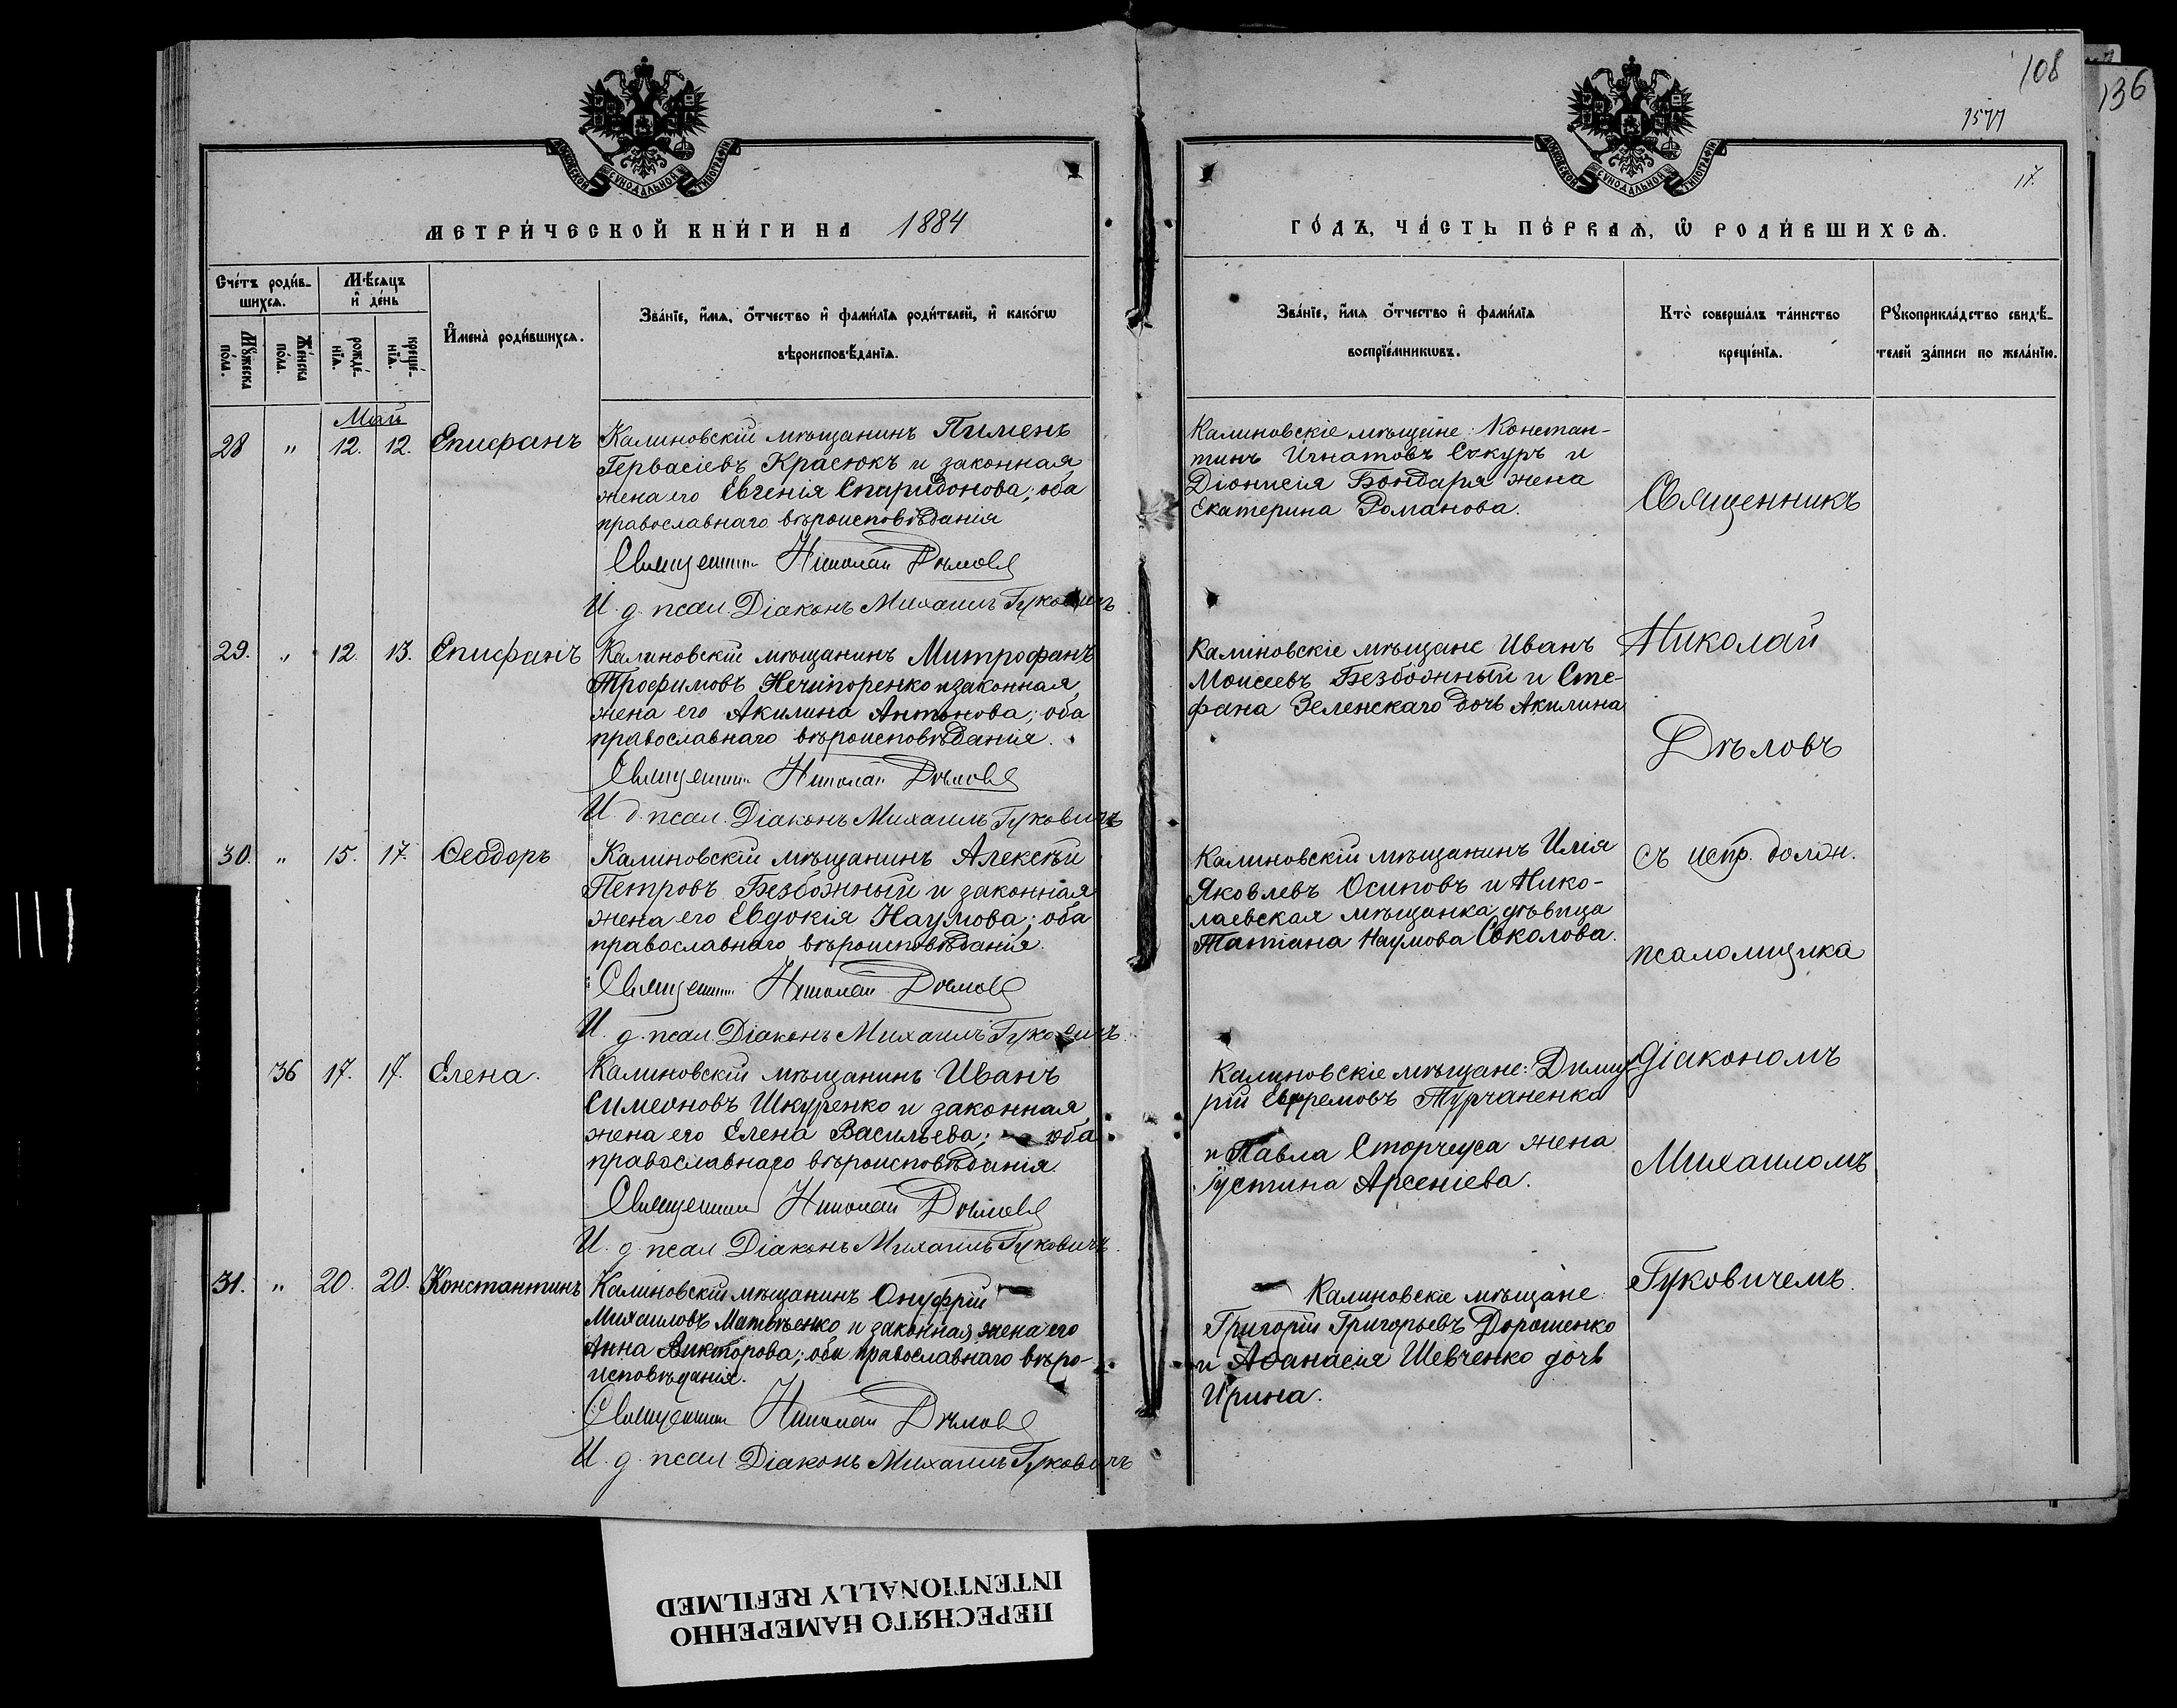 108
136
1577
17.
МОСКОВСКОЙ СѴНОДАЛЬНОЙ ТИПОГРАФІИ
МОСКОВСКОЙ СѴНОДАЛЬНОЙ ТИПОГРАФІИ
МЕТРИ́ЧЕСКОЙ КНИ́ГИ НА 1884
ГО́ДЪ, ЧА́СТЬ ПЕ́РВАѦ, Ѿ РОДИ́ВШИХСѦ.
Сче́тъ роди́в-
шихсѧ.
Мꙋ́жеска по́ла.
Же́нска по́ла.
Мѣ́сѧцъ
и҆ де́нь
рожде́-
нїѧ.
креще́-
нїѧ.
И҆мена̀ роди́вшихсѧ.
Зва́нїе, и҆́мѧ, ѻ҆́тчество и҆ фами́лїѧ роди́телей, и҆ како́гѡ
вѣроисповѣ́данїѧ.
Зва́нїе, и҆́мѧ ѻ҆́тчество и҆ фами́лїѧ
воспрїе́мникѡвъ.
Кто̀ соверша́лъ та́инство
креще́нїѧ.
Рꙋкоприкла́дство свидѣ́-
телей за́писи по жела́нїю.
Май
28 " 12. 12. Епифанъ
Калиновскій мѣщанинъ Пименъ
Гервасіевъ Красюкъ и законная
жена его Евгенія Спиридонова; оба
православнаго вѣроисповѣданія
Священникъ Николай Дѣловъ
И. д. псал. Діаконъ Михаилъ Гуковичъ
Калиновскіе мѣщане: Констан-
тинъ Игнатовъ Сокуръ и
Діонисія Бондаря жена
Екатерина Романова.
Священникъ
29. " 12. 13. Епифанъ
Калиновскій мѣщанинъ Митрофанъ
Трофимовъ Нечипоренко и законная
жена его Акилина Антонова; оба
православнаго вѣроисповѣданія.
Священникъ Николай Дѣловъ
И. д. псал. Діаконъ Михаилъ Гуковичъ
Калиновскіе мѣщане Иванъ
Моисеевъ Безбожный и Сте-
фана Зеленскаго дочь Акилина
Николай
Дѣловъ
30. " 15. 17. Ѳеодоръ
Калиновскій мѣщанинъ Алексѣй
Петровъ Безбожный и законная
жена его Евдокія Наумова; оба
православнаго вѣроисповѣданія.
Священникъ Николай Дѣловъ
И. д. псал. Діаконъ Михаилъ Гуковичъ.
Калиновскій мѣщанинъ Илія
Яковлевъ Осиповъ и Нико-
лаевская мѣщанка дѣвица
Татіана Наумова Соколова.
съ испр. должн.
псаломщика
36 17. 17. Елена.
Калиновскій мѣщанинъ Иванъ
Симеоновъ Шкуренко и законная
жена его Елена Васильева; оба
православнаго вѣроисповѣданія
Священникъ Николай Дѣловъ
И. д. псал. Діаконъ Михаилъ Гуковичъ.
Калиновскіе мѣщане: Димит-
рій Ефремовъ Турчаненко
и Павла Сторчеуса жена
Іустина Арсеніева.
діакономъ
Михаиломъ
31. " 20. 20. Константинъ
Калиновскій мѣщанинъ Онуфрій
Михаиловъ Матвѣенко и законная жена его
Анна Викторова; оба православнаго вѣро-
исповѣданія.
Священникъ Николай Дѣловъ
И. д. псал. Діаконъ Михаилъ Гуковичъ
Калиновскіе мѣщане:
Григорій Григорьевъ Дорошенко
и Аѳанасія Шевченко дочь
Ирина.
Гуковичемъ.
ПЕРЕСНЯТО НАМЕРЕННО
INTENTIONALLY REFILMED